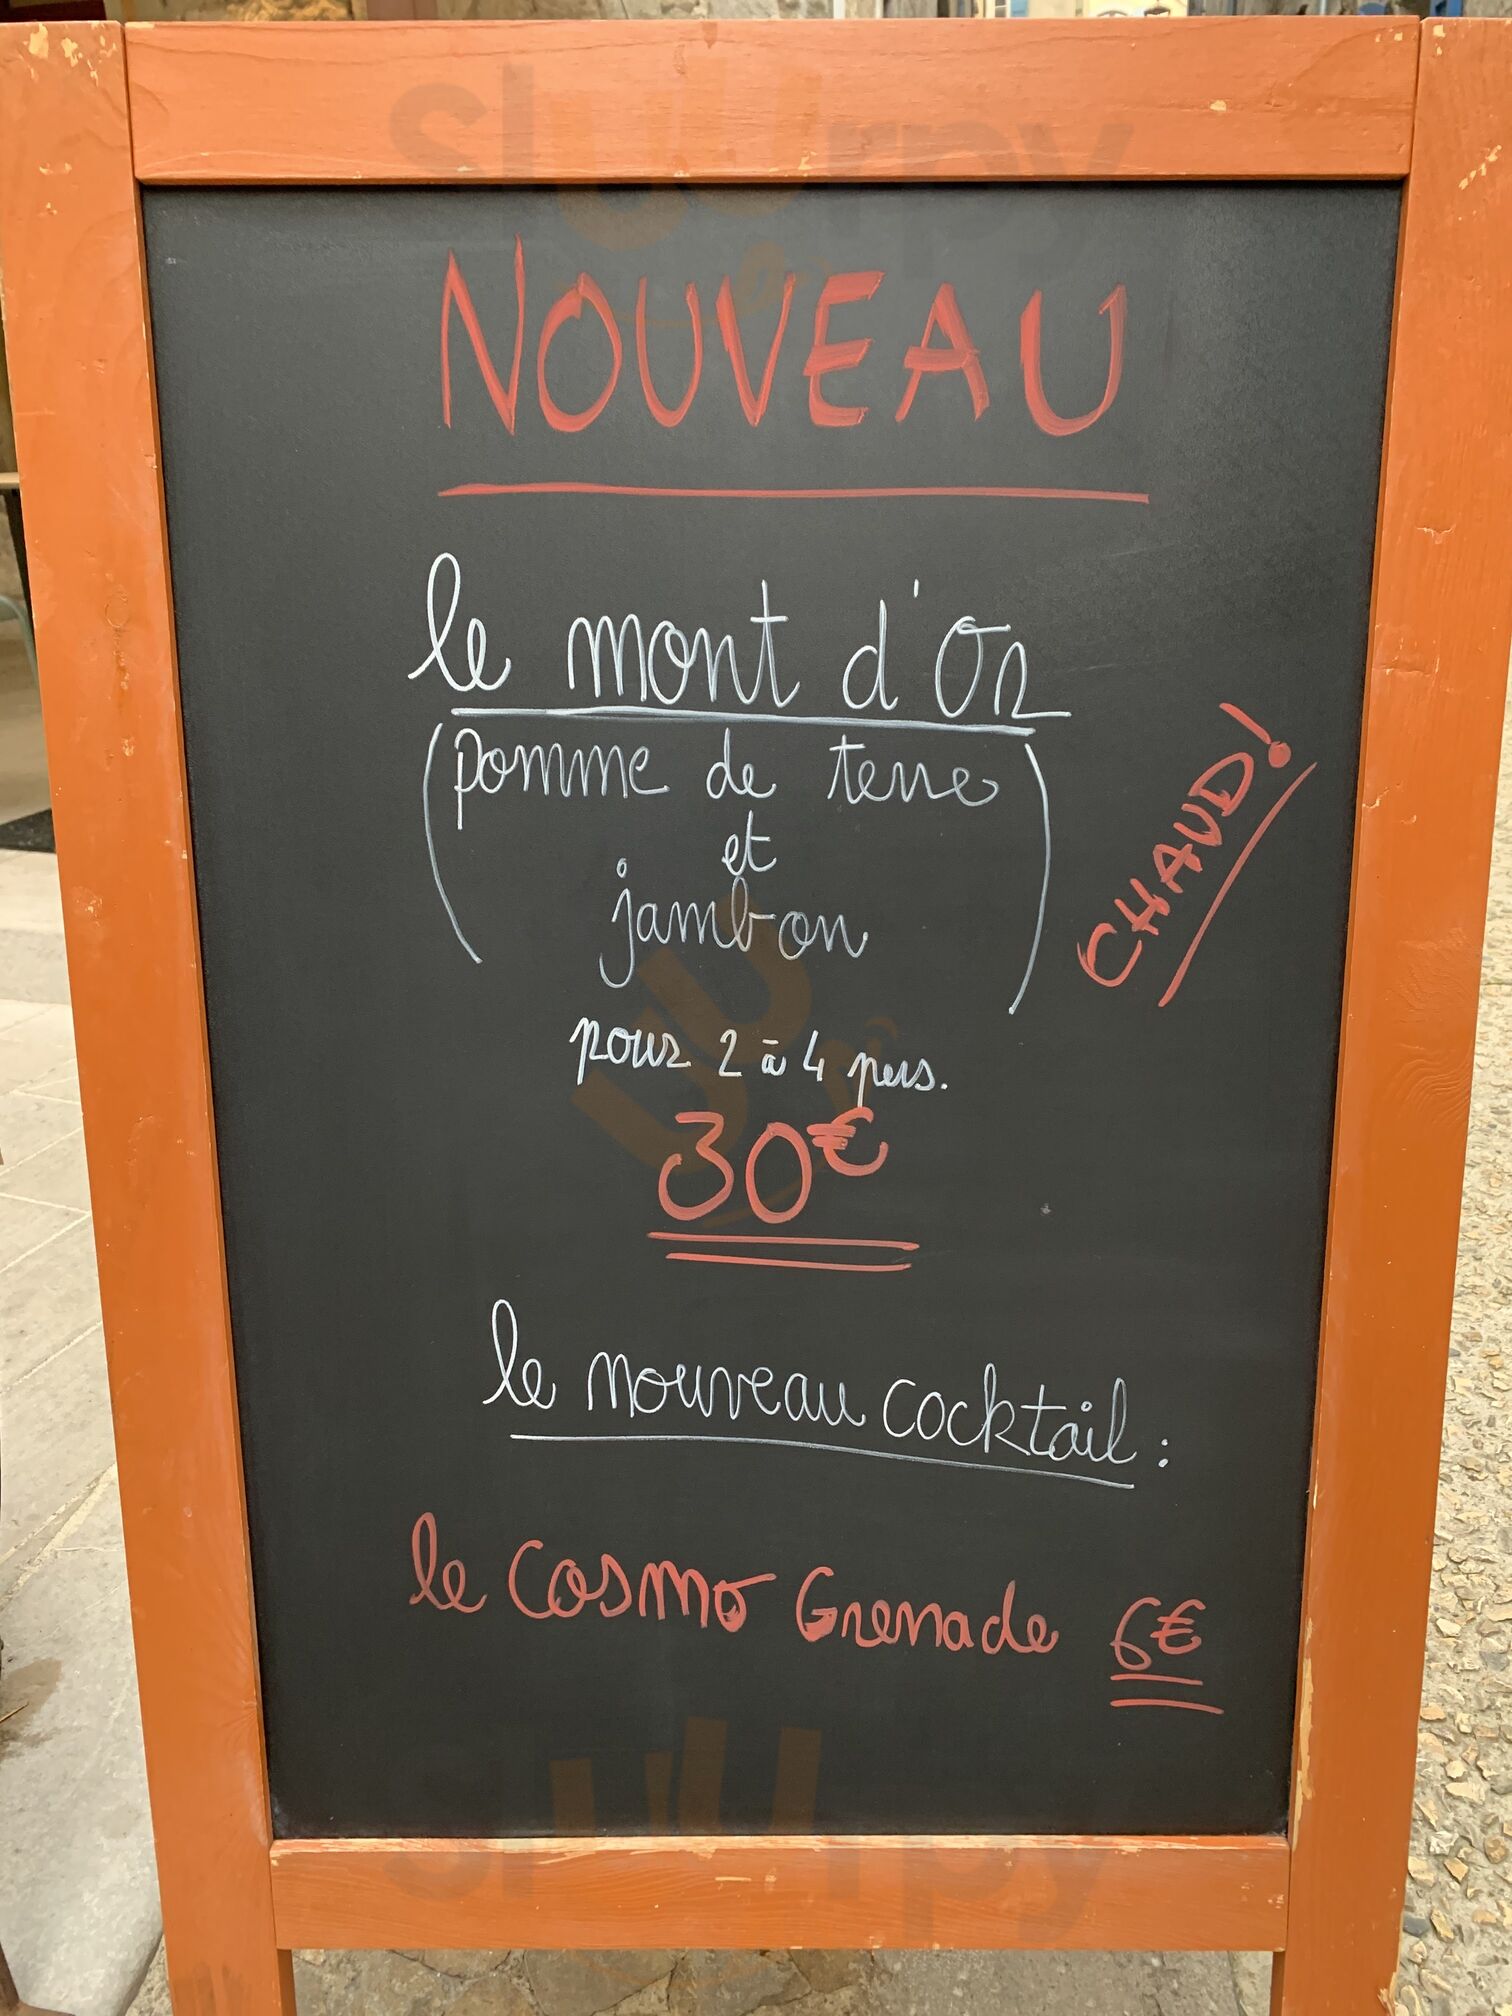 sluurpy
NOUVEAU
le mont d'Or
(pomme de terre
et
jambon)
CHAUD!
pour 2 à 4 pers.
30€
le nouveau cocktail :
le Cosmo Grenade 6€
sluurpy